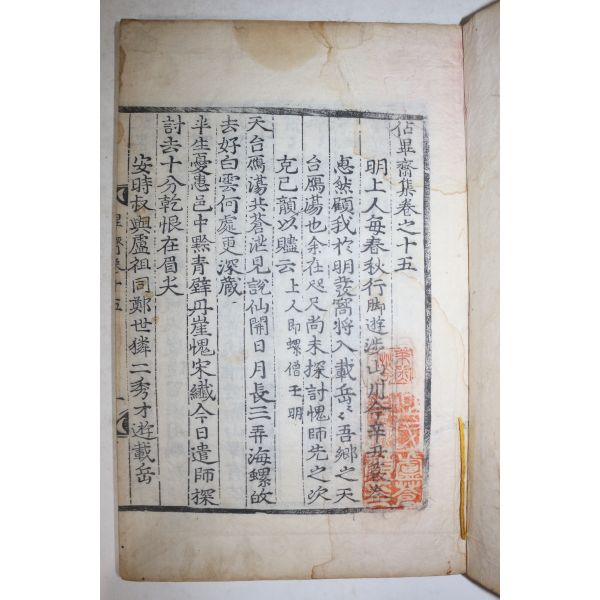 佔畢齋集卷之十五
明上人每春秋行脚遊涉山川今辛丑歲
惠然顧我於明發窩將入載岳〻吾鄉之天
台鴈蕩也余在咫尺尚未探討愧師先之次
克己韻以贐云上人即螺僧玉明
天台鴈蕩共蒼泄見說仙開日月長三弄海螺故
去好白雲何處更深藏
半生憂患邑中黔青壁丹崖愧宋纖今日遣師探
討去十分乾恨在眉尖
安時叔與盧祖同鄭世獜二秀才遊載岳